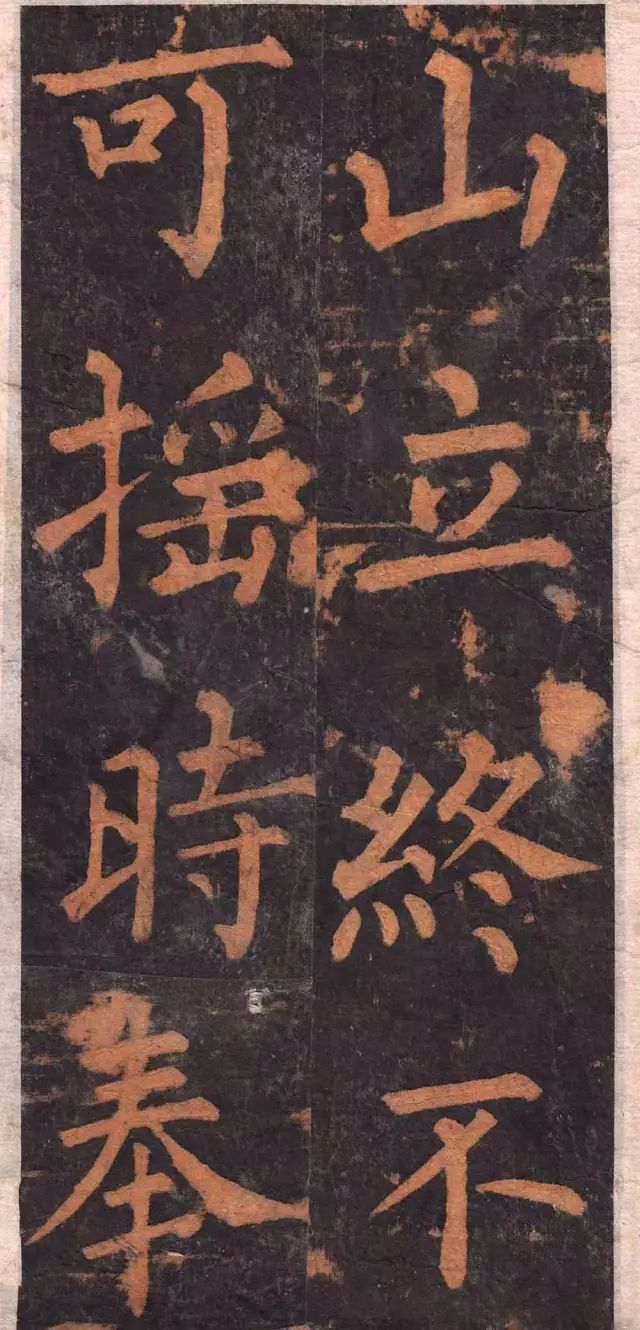 山立終不
可揺時奉